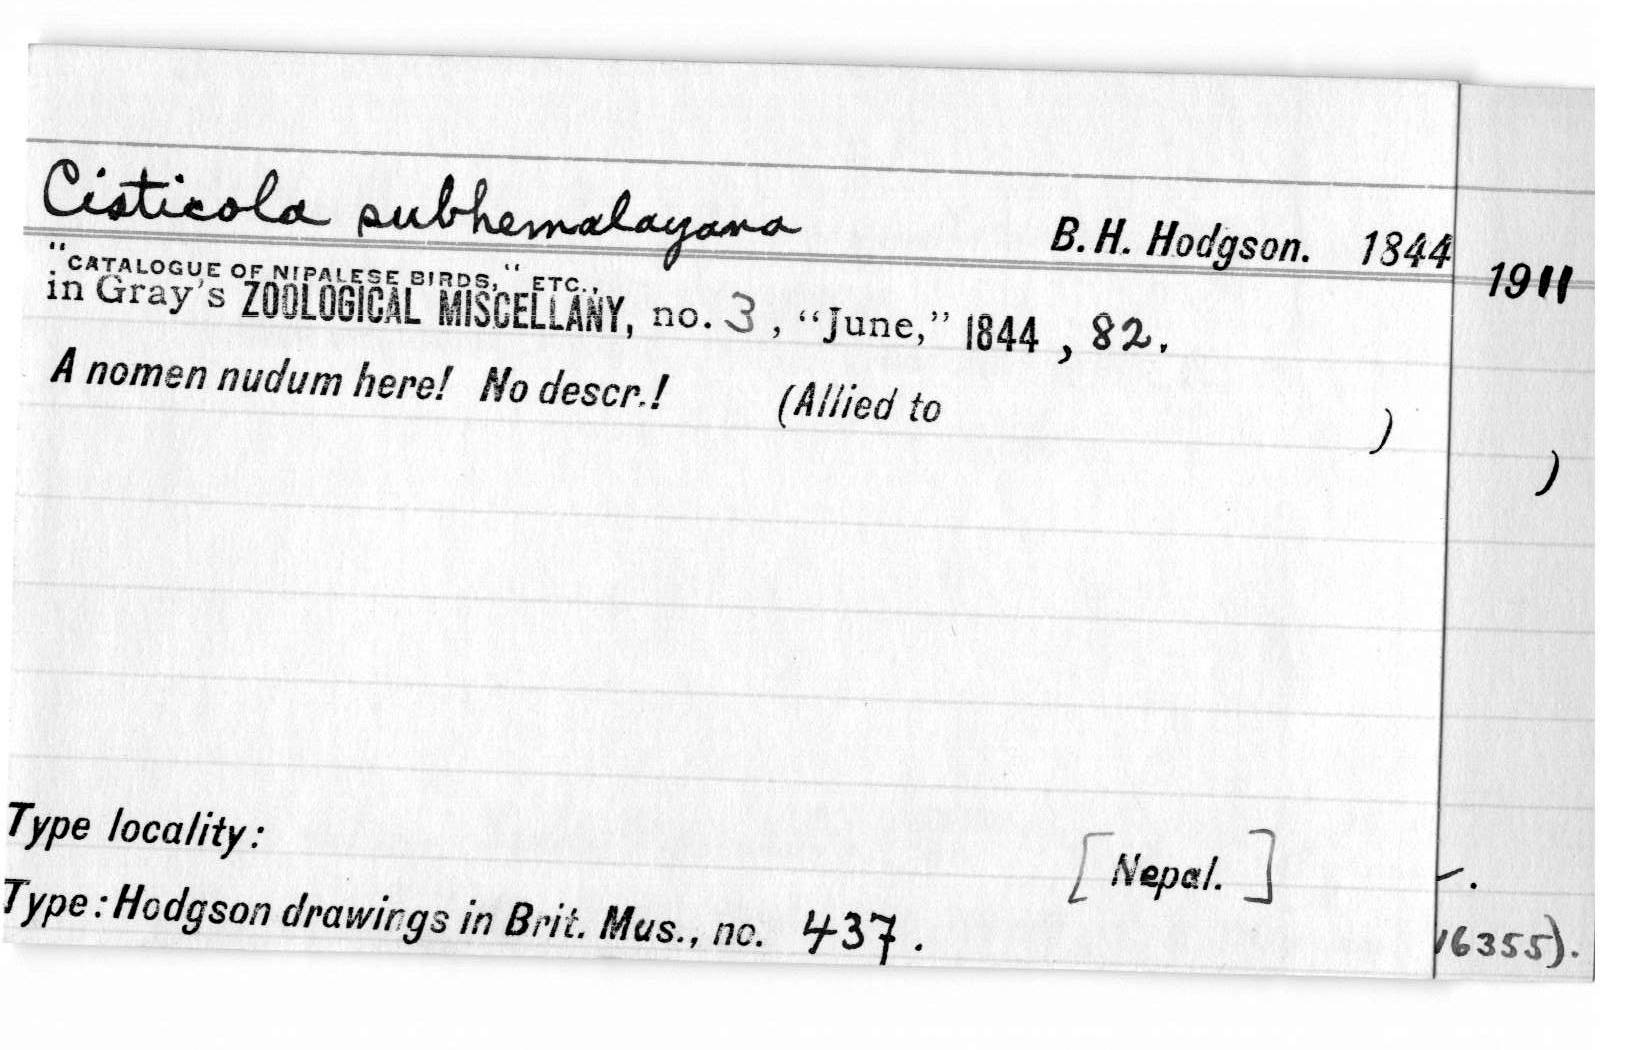 Cisticola subhemalayana B. H. Hodgson. 1844
"CATALOGUE OF NIPALESE BIRDS," ETC.,
in Gray's ZOOLOGICAL MISCELLANY, no. 3, "June," 1844, 82.
A nomen nudum here! No descr.! (Allied to )
Type locality: [Nepal.]
Type: Hodgson drawings in Brit. Mus., no. 437.
1911
)
16355).